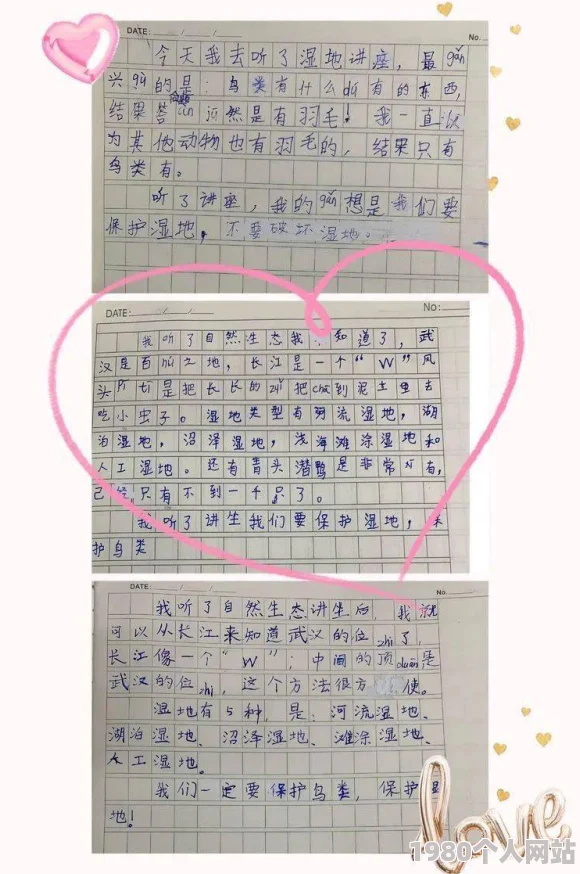 DATE:
No.
今天我去听了湿地讲座，最gǎn
兴qù的是：鸟类有什么dú有的东西，
结果答àn居然是有羽毛！我一直以
为其他动物也有羽毛的，结果只有
鸟类有。
听了讲座，我的gǎn想是我们要
保护湿地，不要破坏湿地。
DATE:
No:
我听了自然生态我 知道了，武
汉是百 之地，长江是一个“W”风
头 是把长长的 把 到泥土里去
吃小虫子。湿地类型有河流湿地，湖
泊湿地，沼泽湿地，浅海滩涂湿地和
人工湿地。还有青头潜鸭是非常 有，
己经只有不到一千只了。
我听了讲生我们要保护湿地，
护鸟类
DATE:
No.
我听了自然生态讲生后，我就
可以从长江来知道武汉的位zhi了，
长江像一个“W”；中间的顶duān是
武汉的位zhi，这个方法很方 使。
湿地有5种，是：河流湿地、
湖泊湿地、沼泽湿地、滩涂湿地、
人工湿地。
我们一定要保护鸟类，保护湿
地！
love
1980个人网站